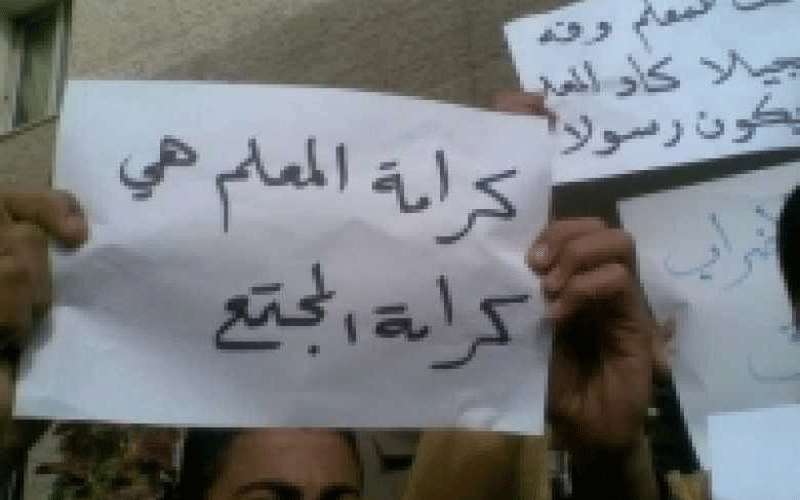 كرامة المعلم هي
كرامة المجتمع
للمعلم وفه
كاد المعلم
يكون رسولا